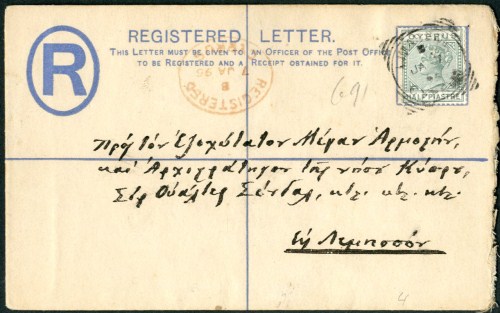 REGISTERED LETTER.
THIS LETTER MUST BE GIVEN TO AN OFFICER OF THE POST OFFICE
TO BE REGISTERED AND A RECEIPT OBTAINED FOR IT.
R
CYPRUS
PIASTRE
REGISTERED
8
7 JA 95
691
Πρὸς τὸν Ἐξοχώτατον Μέγαν Ἁρμοστὴν,
καὶ Ἀρχιστράτηγον τῆς νήσου Κύπρου,
Σὶρ Οὐάλτερ Σένδαλ, κτλ. κτλ. κτλ.
Εἰς Λεμησσόν
4